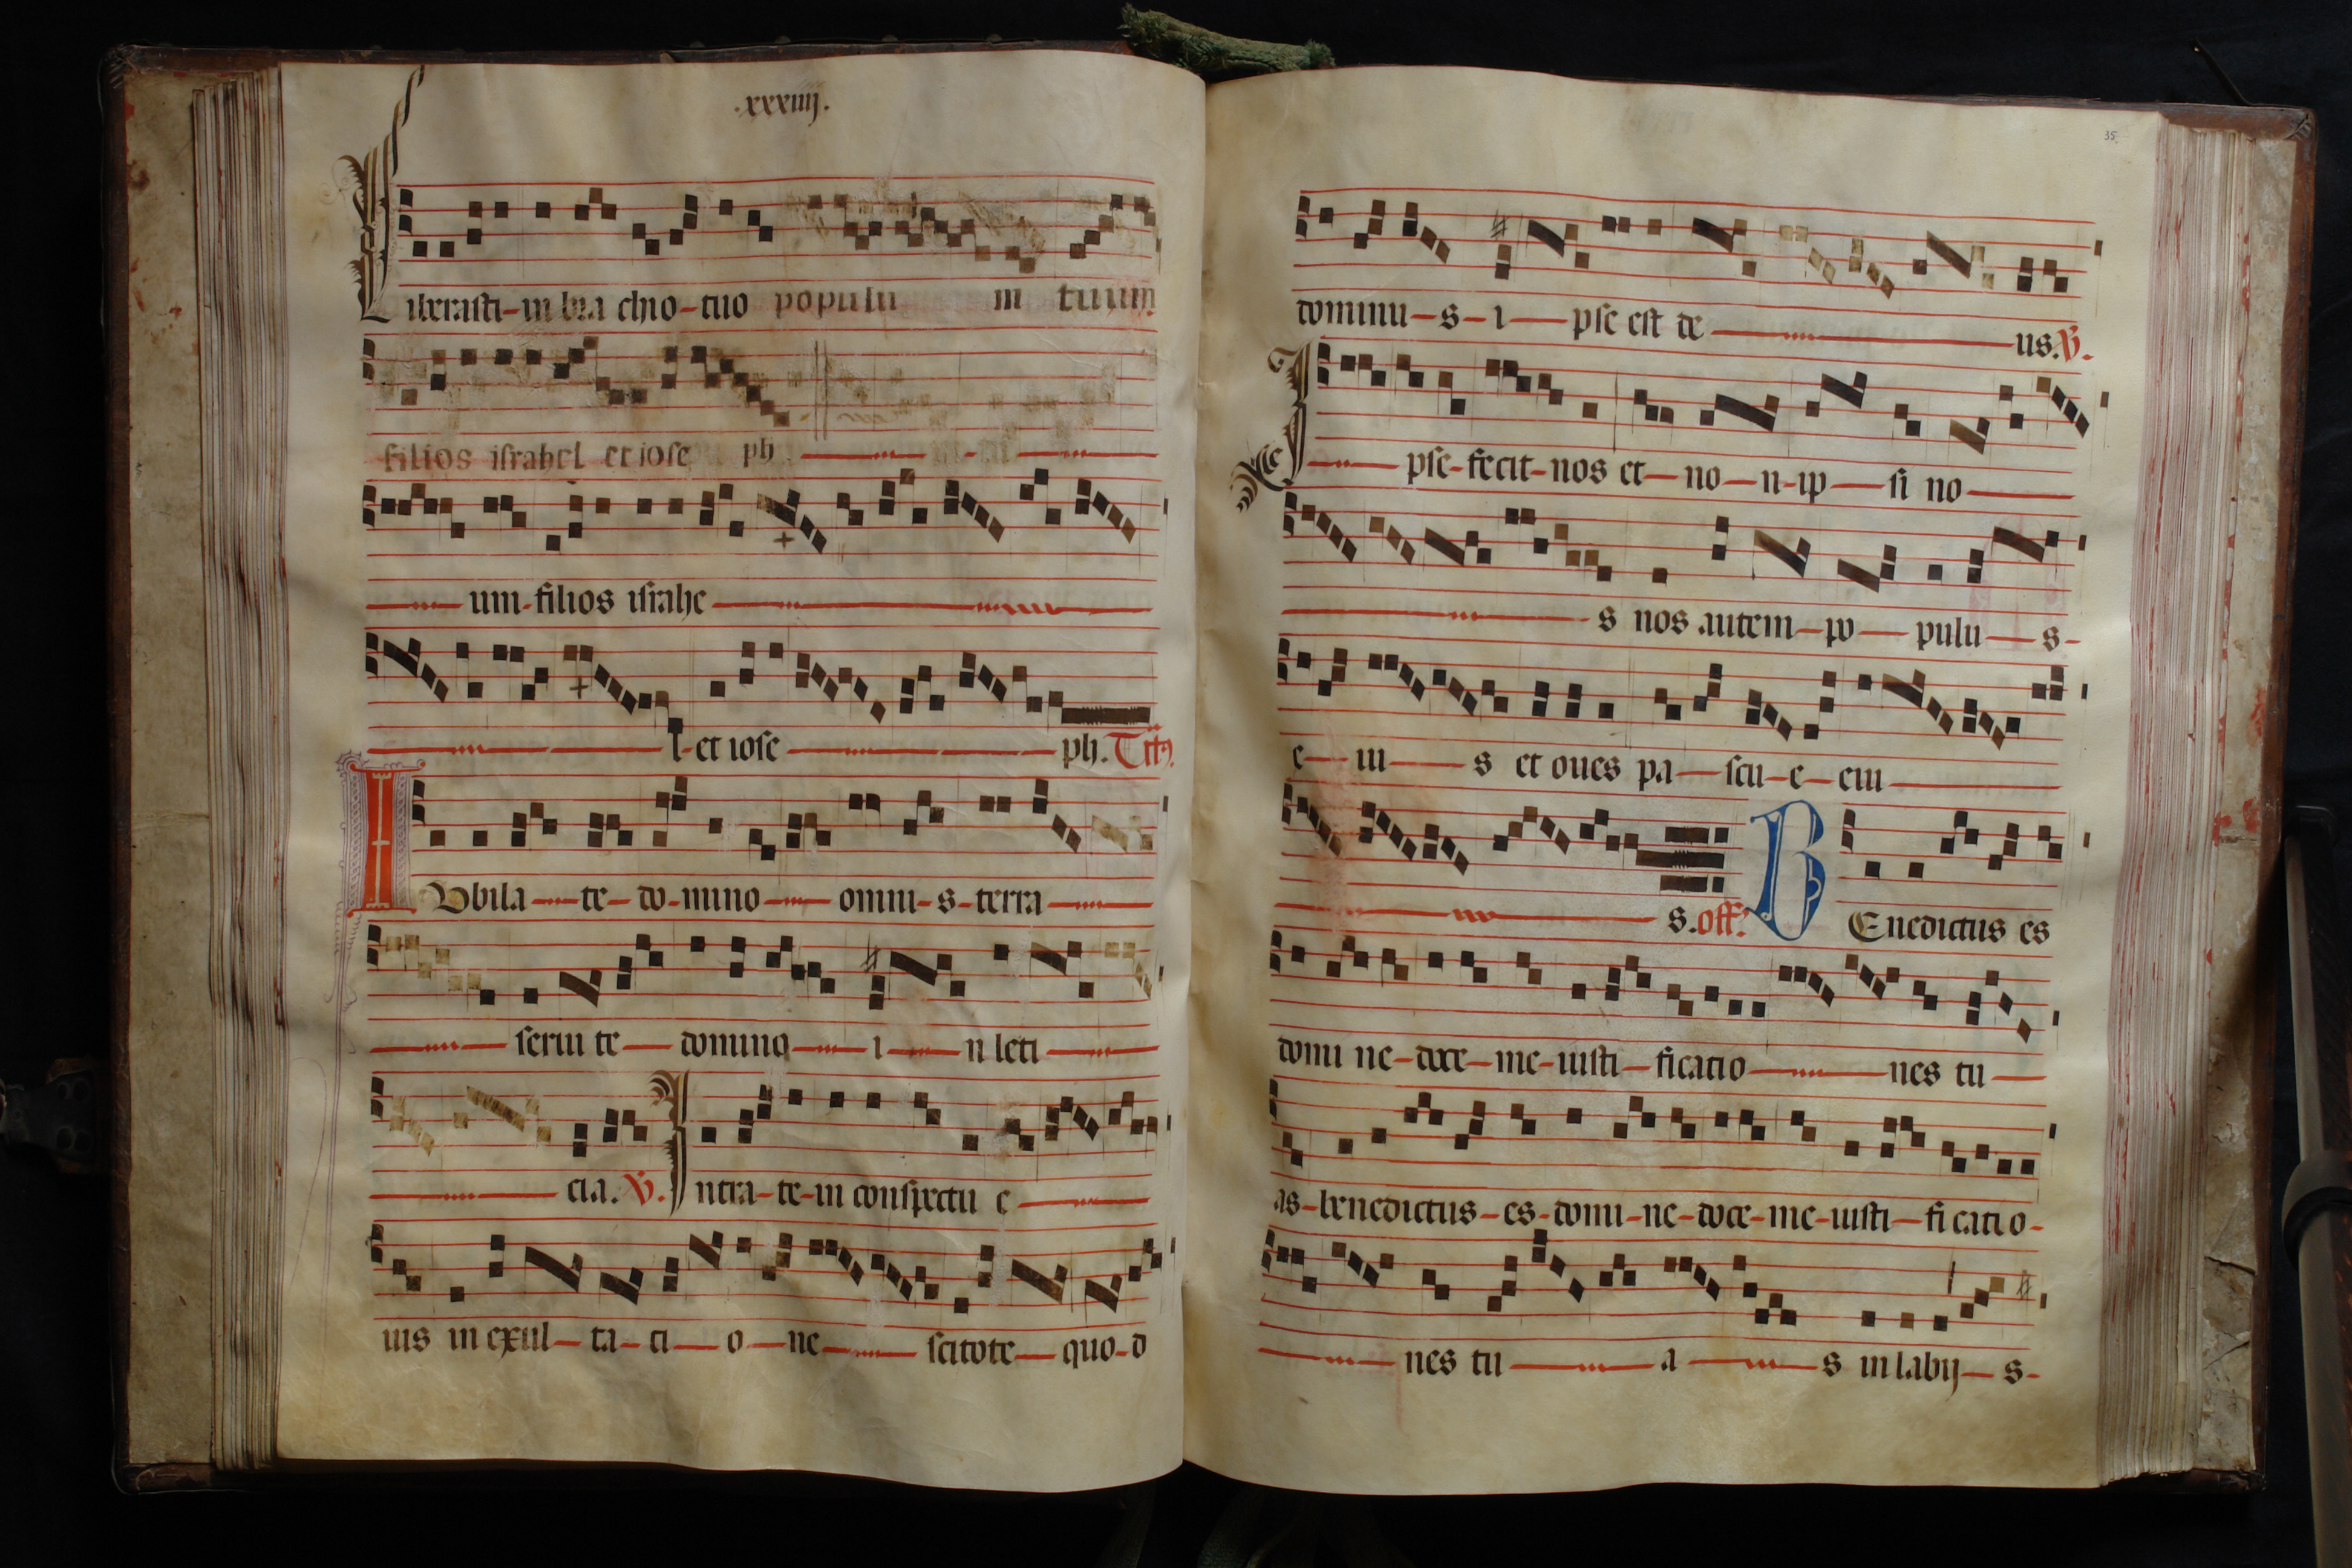 .xxxiiij.
Liberasti-in bra chio-tuo populu m tuum
filios israhel et iose ph
um-filios israhe
l-et iose ph. Tct9.
IVbila-te-do-mino-omni-s-terra
serui te-domino-i-n leti
cia. V. Intra-te-in conspectu e
ius in exul-ta-ti-o-ne-scitote-quo-d
35.
dominu-s-i-pse est de-us. V.
Ipse-fecit-nos et-no-n-ip-si no
s nos autem-po-pulu-s-
e-iu-s et oues pa-scu-e-eiu
s. off. BEnedictus es
domi ne-doce-me-iusti-ficatio-nes tu-
as-benedictus-es-domi-ne-doce-me-iusti-fi catio-
nes tu-a-s in labij-s-